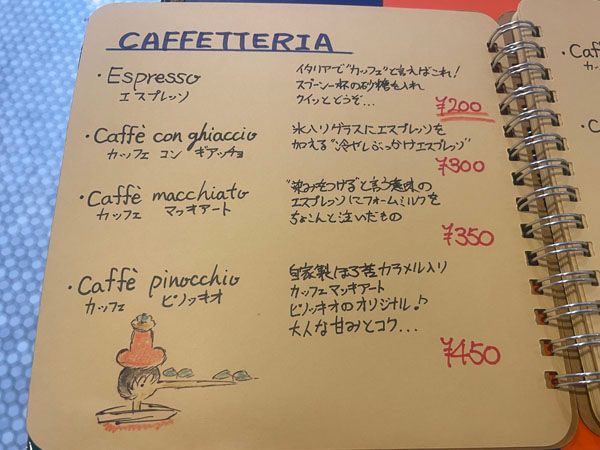 CAFFETTERIA
・Espresso
エスプレッソ
イタリアで"カッフェ"と言えばこれ!
スプーン一杯の砂糖を入れ
クイッとどうぞ...
¥200
・Caffè con ghiaccio
カッフェ コン ギアッチョ
氷入りグラスにエスプレッソを
加える"冷やしぶっかけエスプレッソ"
¥300
・Caffè macchiato
カッフェ マッキアート
"染みをつける"と言う意味の
エスプレッソにフォームミルクを
ちょこんと注いだもの
¥350
・Caffè pinocchio
カッフェ ピノッキオ
自家製ほろ苦カラメル入り
カッフェマッキアート
ピノッキオのオリジナル♪
大人な甘みとコク...
¥450
・Caff
カッ
・C